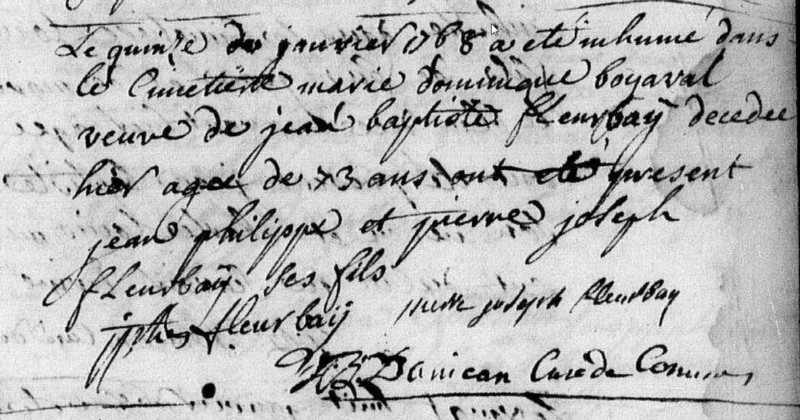 Le quinze de janvier 1768 a eté inhumé dans
le Cimetiere marie dominique boyaval
veuve de jean baptiste fleurbaÿ decedee
hier agee de 73 ans ont eté present
jean philippe et pierre joseph
fleurbaÿ ses fils
fleurbaÿ pierre joseph fleurbay
Danican Curé de